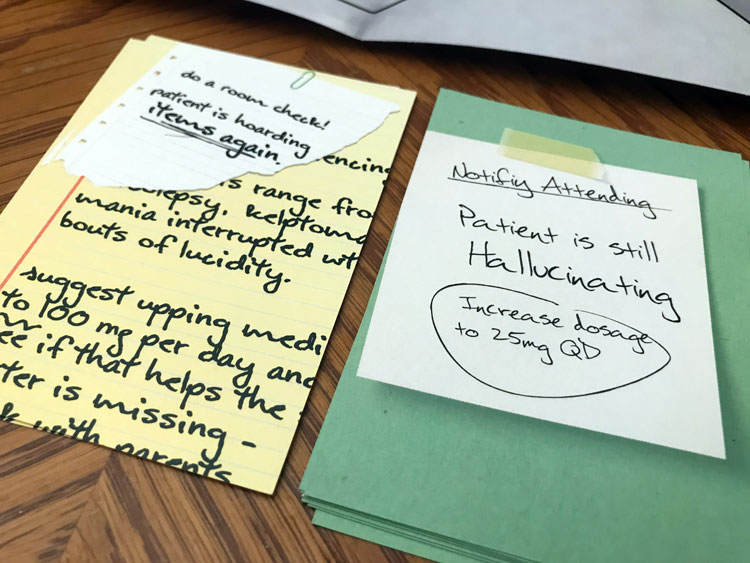 do a room check!
patient is hoarding
items again.
encing
is range fro
lepsy, kelptoma
mania interrupted wit
bouts of lucidity.
suggest upping medi
to 100 mg per day and
ee if that helps the
ter is missing -
with parents
Notifiy Attending
Patient is still
Hallucinating
Increase dosage
to 25mg QD